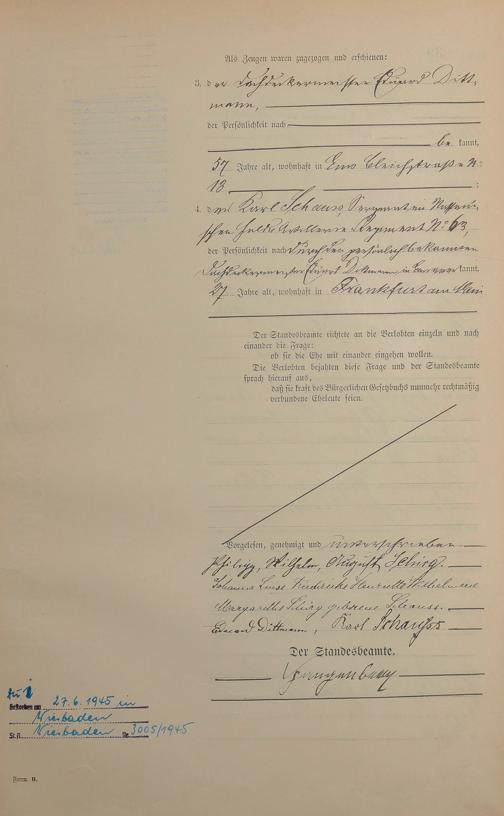 Als Zeugen waren zugezogen und erschienen:
3. der Dachdeckermeister Eduard Ditt-
mann,
der Persönlichkeit nach
be kannt,
57 Jahre alt, wohnhaft in Ems Bleichstraße N:
13 ;
4. der Karl Schauss, Sergeant im Nassaui-
schen Feld-Artillerie Regiment No 63,
der Persönlichkeit nach durch den persönlich bekannten
Dachdeckermeister Eduard Dittmann kannt,
27 Jahre alt, wohnhaft in Frankfurt am Main
Der Standesbeamte richtete an die Verlobten einzeln und nach
einander die Frage:
ob sie die Ehe mit einander eingehen wollen.
Die Verlobten bejahten diese Frage und der Standesbeamte
sprach hierauf aus,
daß sie kraft des Bürgerlichen Gesetzbuchs nunmehr rechtmäßig
verbundene Eheleute seien.
Vorgelesen, genehmigt und unterschrieben
Philipp, Wilhelm, August
Johanna Luise Friederike Henriette Wilhelmine
Margarethe geborene Schauss.
Eduard Dittmann, Karl Schauss
Der Standesbeamte.
27.6.1945 in
Wiesbaden
St.A. Wiesbaden Nr. 3005/1945
Form. B.